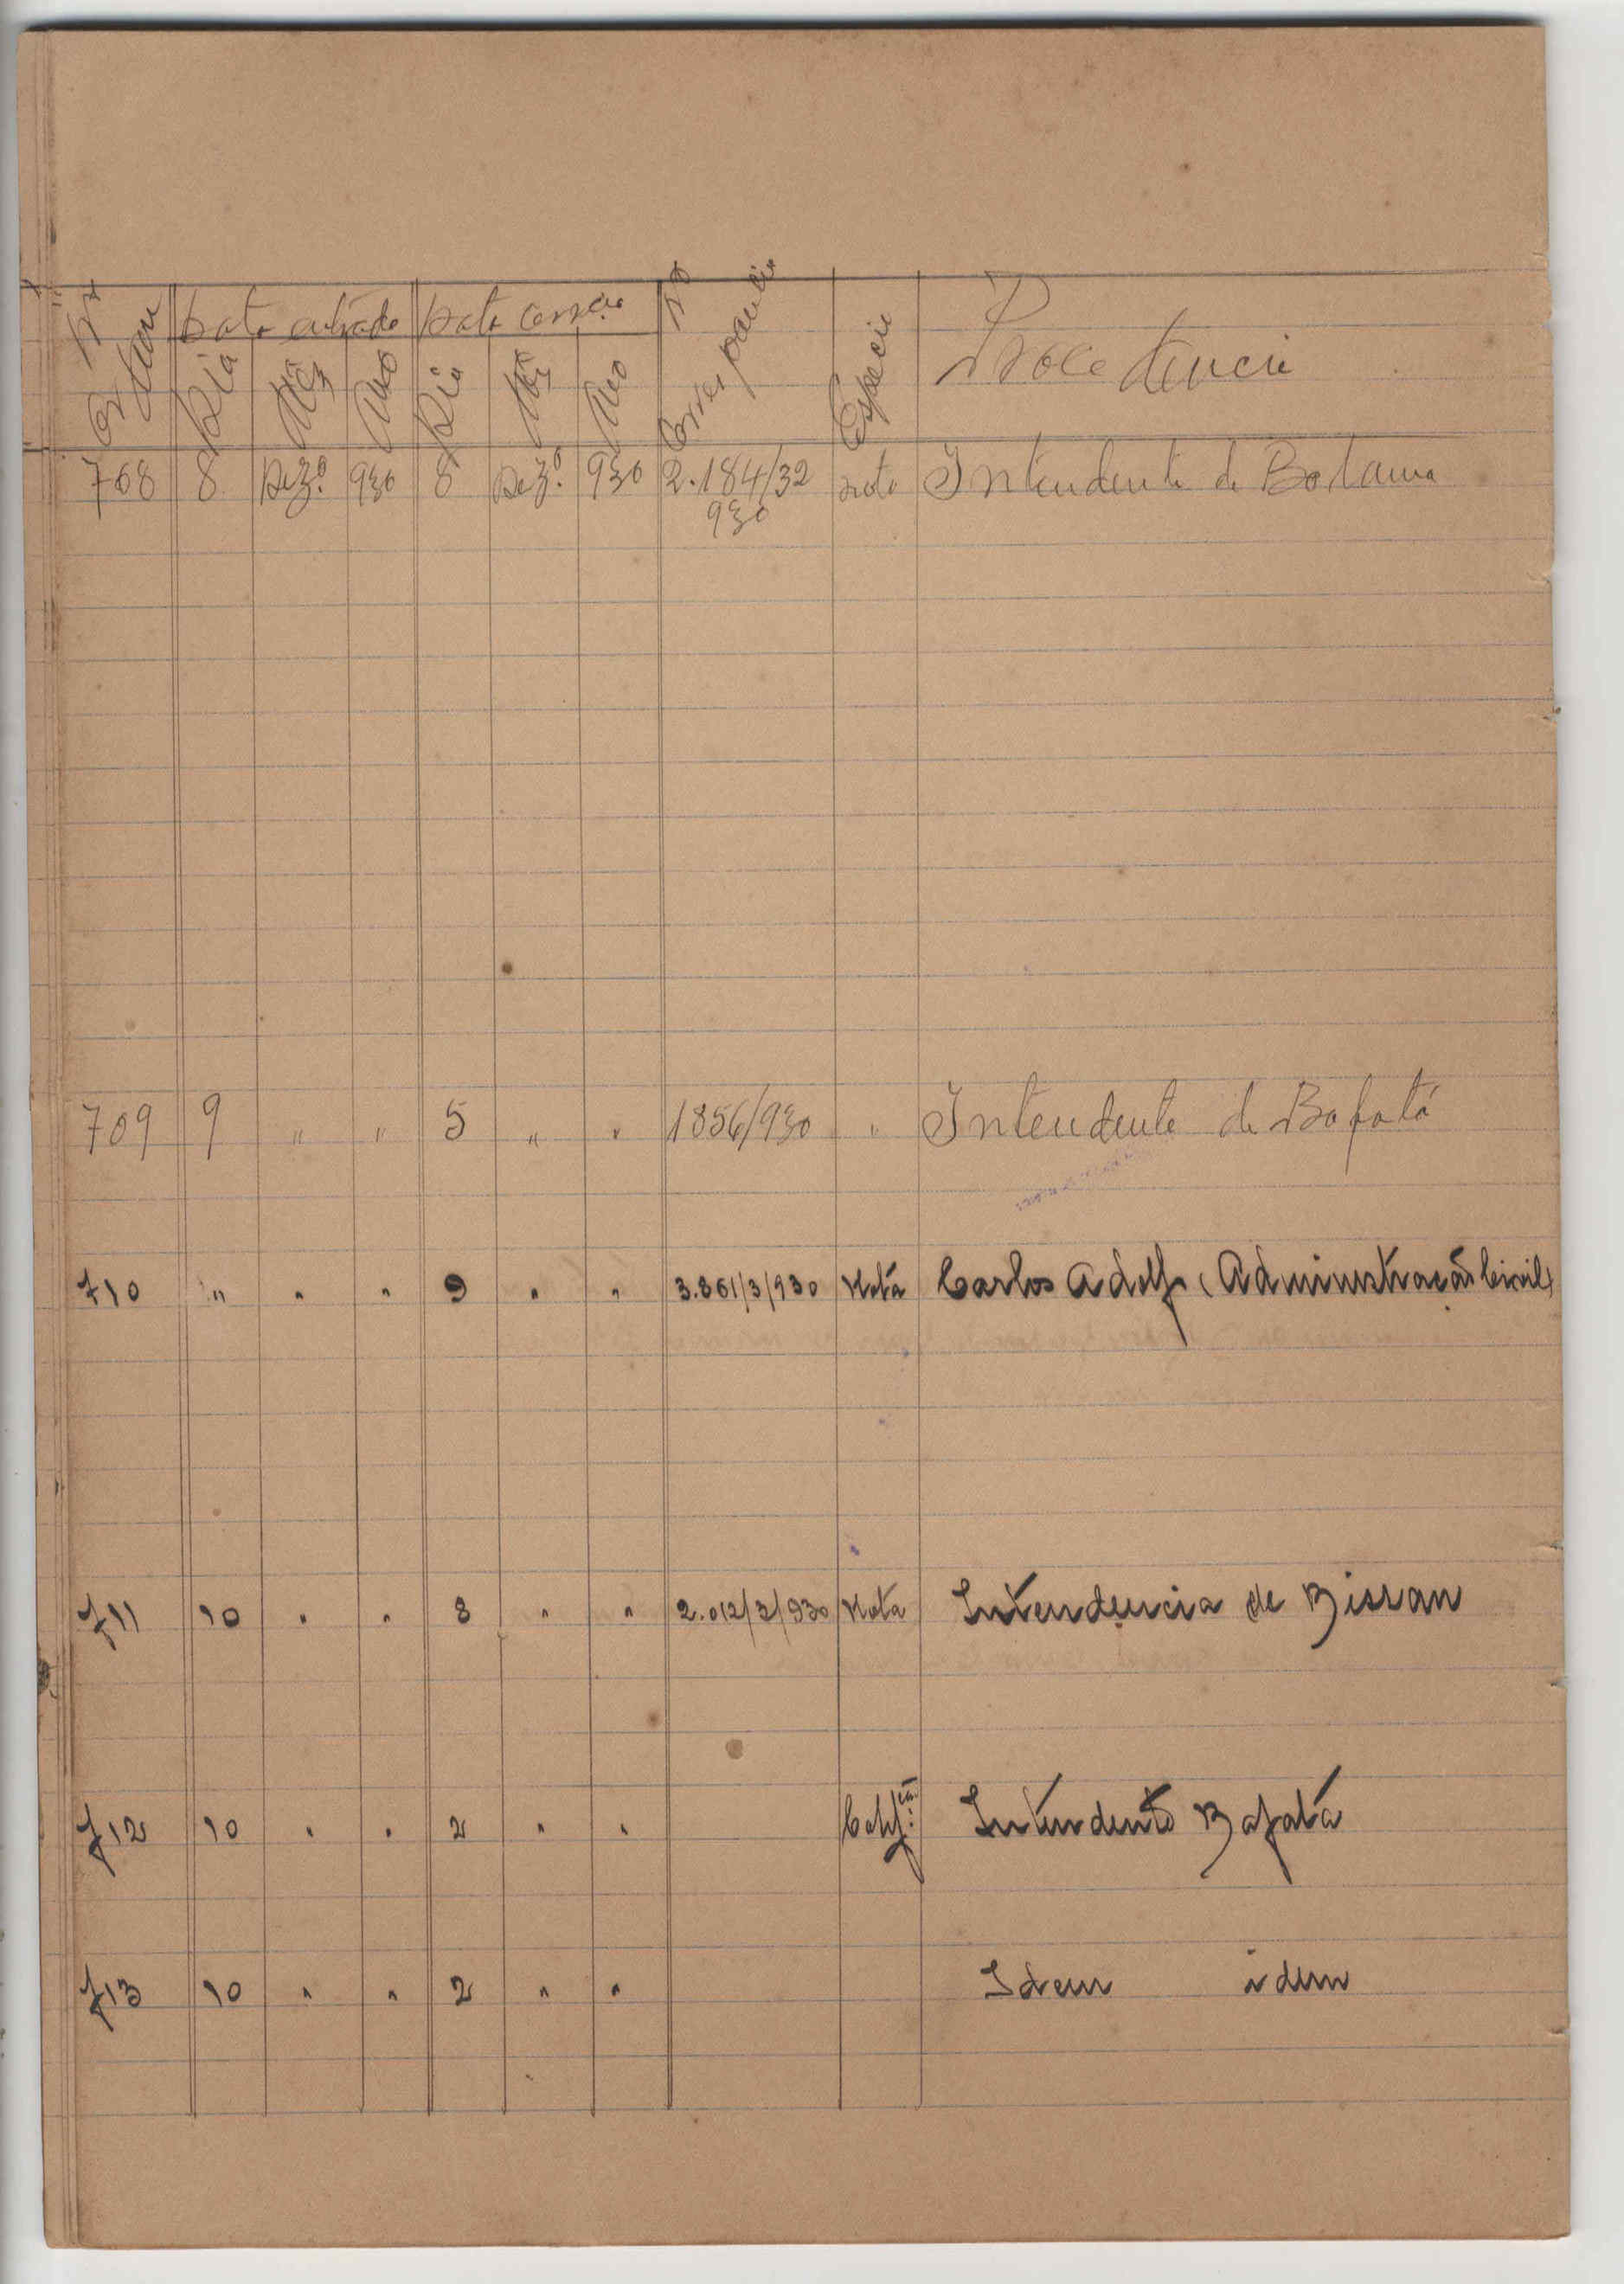 Nº Ordem Data entrada Data correio Nº Correspondencia Especie Procedencia
Dia Mêz Ano Dia Mêz Ano
708 8 Dezº 930 8 Dezº 930 2.184/32 nota Intendente de Bolama
930
709 9 " " 5 " " 1856/930 " Intendente de Bafatá
710 " " " 9 " " 3.861/3/930 Nota Carlos Adolf (Administração Civil)
711 10 " " 8 " " 2.012/3/930 Nota Intendencia de Bissau
712 10 " " 2 " " Intendente Bafatá
713 10 " " 2 " " Idem idem